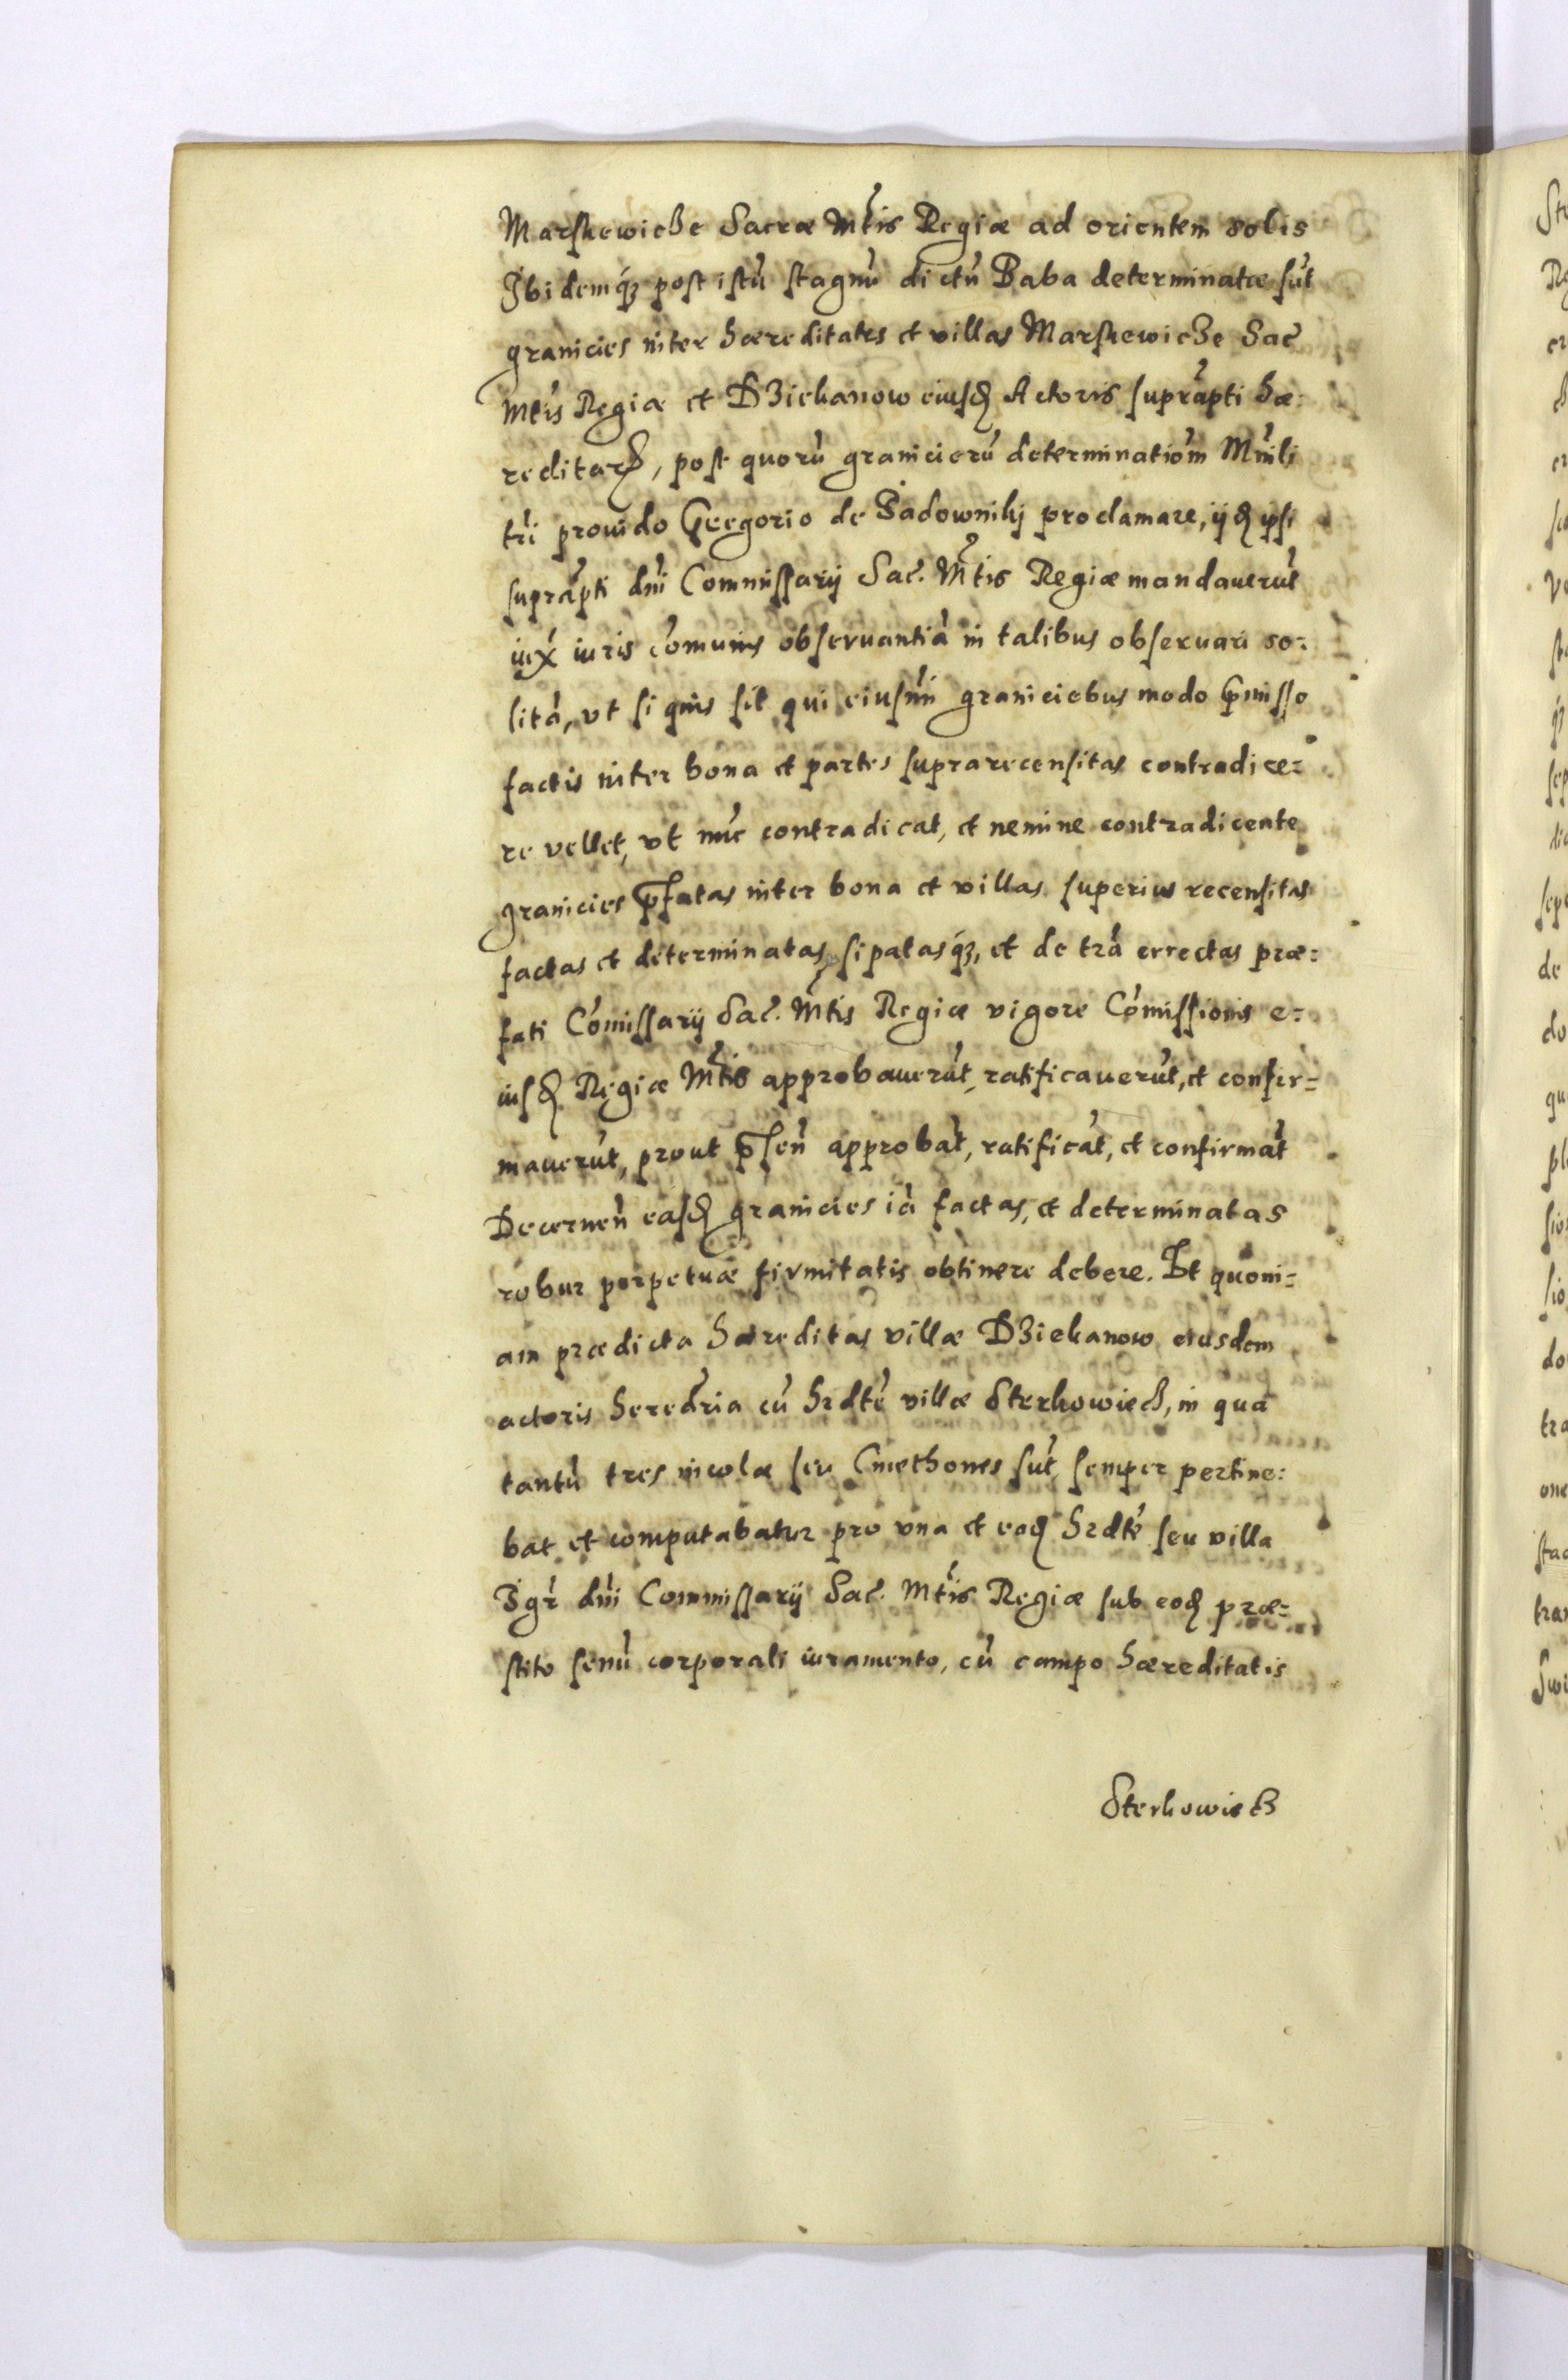 Marskewicze Sacræ Mtis Regiæ ad orientem solis
Ibidemq₃ post istū stagnū dictū Baba determinatæ sūt
granicies inter hæreditates et villas Markewicze Sac̃
Mtis Regiæ et Dziekanow eiusd̨ Actoris supraṕti hæ:
reditar̨, post quorū granicierū determinatiōm Mīnli
tri̇ prouido Gregorio de Sadowniky proclamare, ijd̨ ip̃si
supraṕti dn̄i Commissarij Sac̃. Mtis Regiæ mandauerūt
iux̄ iuris cōmunis obseruantiā in talibus obseruari so:
litā, vt si quis sit qui eiusm̄i graniciebus modo p̄misso
factis inter bona et partes suprarecensitas contradice:
re vellet, vt nūc contradicat, et nemine contradicente
granicies p̄fatas inter bona et villas superius recensitas
factas et determinatas, sipatasq₃, et de tr̄a errectas præ:
fati Cōmissarij Sac̃. Mtis Regiæ vigore Cōmissionis e:
iusd̨ Regiæ Mtis approbauerūt, ratificauerūt, et confir=
mauerūt, prout p̄sen̄ approbāt, ratificāt, et confirmāt
Decernen̄ easd̨ granicies iā factas, et determinatas
robur perpetuæ firmitatis obtinere debere. Et quoni=
am prædicta hæreditas villæ Dziekanow eiusdem
actoris heredr̄ia cū hrdtē villæ Sterkowiec3, in qua
tantū tres incolæ seu Cmethones sūt, semper pertine:
bat et computabatur pro vna et eod̨ hrdtē seu villa
Igr̄ dn̄i Commissarij Sac̃. Mtis Regiæ sub eod̨ præ=
stito senū corporali iuramento, cū campo hæreditatis
Sterkowiec3